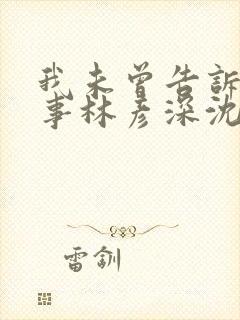 我未曾告訴
事林彥深沈
雷釧